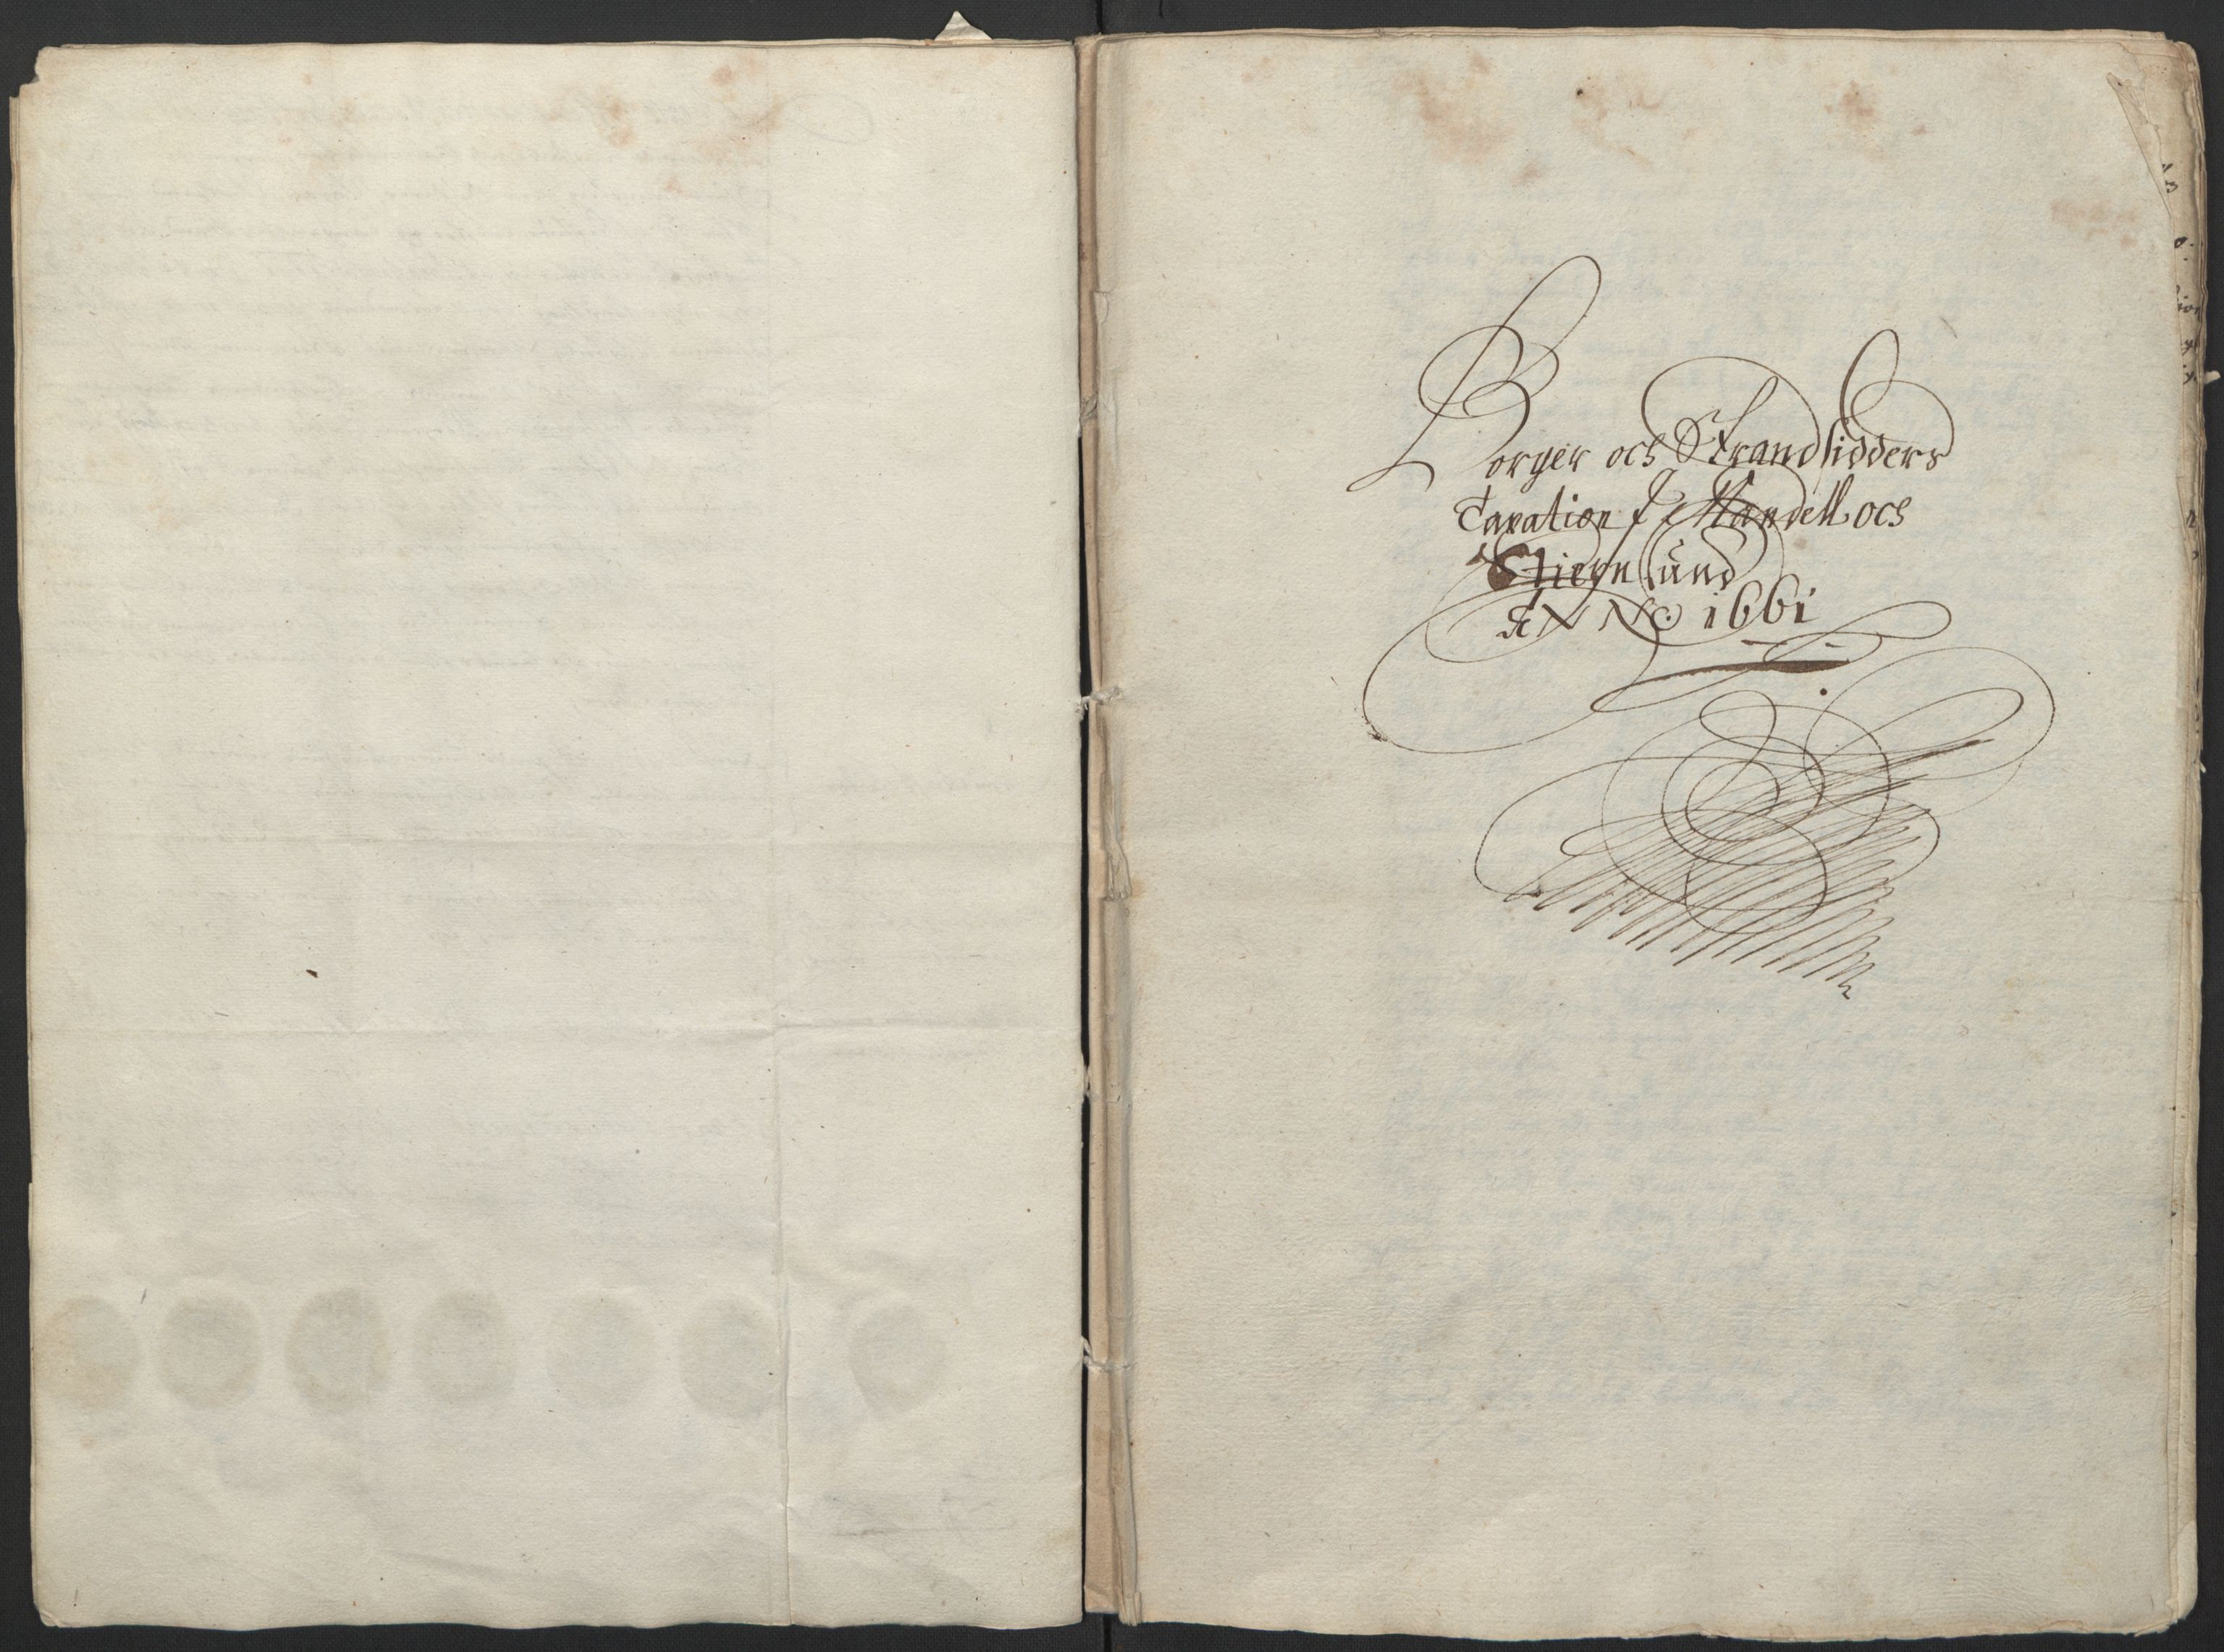 Borger och Strandsidders
Taxation J Mandell och
Stiernsund
ANNO 1661